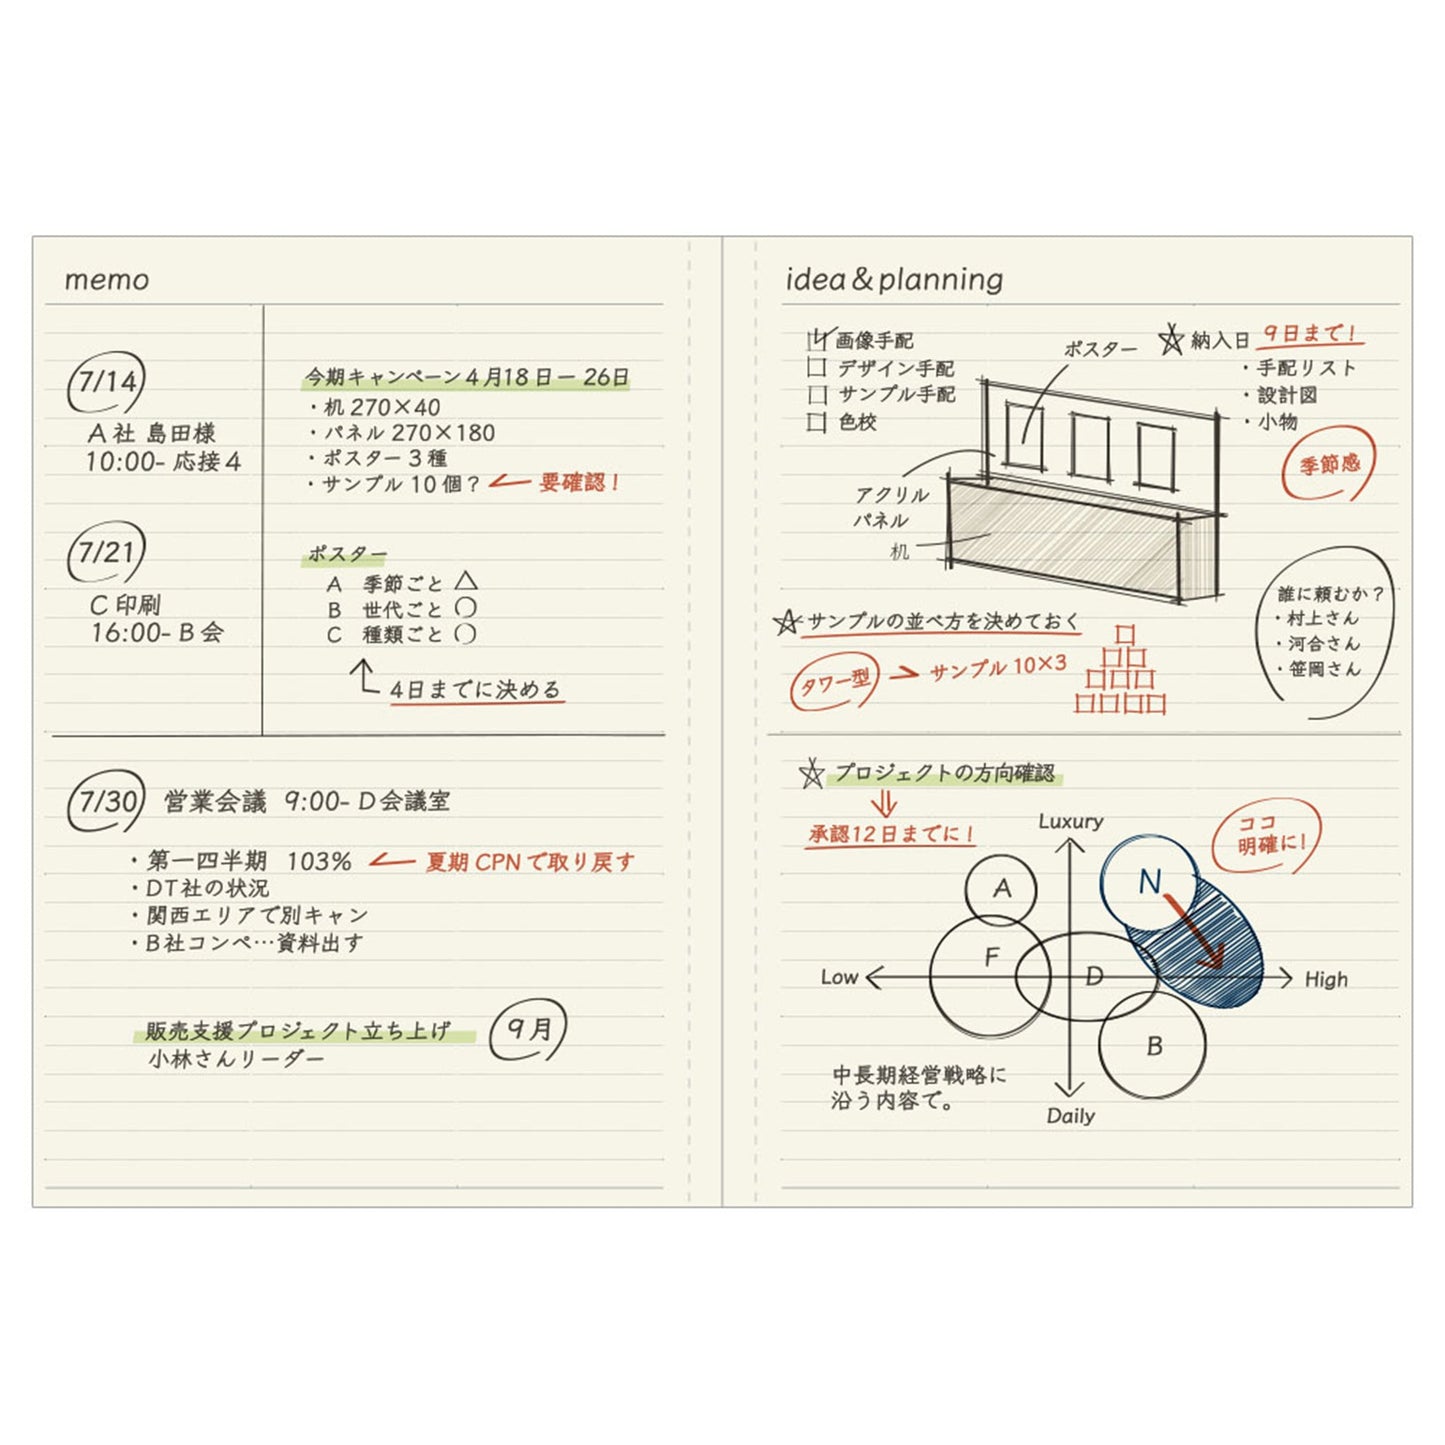 memo
7/14
A社 島田様
10:00- 応接4
今期キャンペーン4月18日ー26日
・机 270×40
・パネル 270×180
・ポスター3種
・サンプル10個? 要確認!
7/21
C印刷
16:00- B会
ポスター
A 季節ごと △
B 世代ごと ○
C 種類ごと ○
4日までに決める
7/30 営業会議 9:00- D会議室
・第一四半期 103% 夏期CPNで取り戻す
・DT社の状況
・関西エリアで別キャン
・B社コンペ…資料出す
販売支援プロジェクト立ち上げ 9月
小林さんリーダー
idea&planning
画像手配
デザイン手配
サンプル手配
色校
ポスター
アクリル
パネル
机
納入日 9日まで!
・手配リスト
・設計図
・小物
季節感
誰に頼むか?
・村上さん
・河合さん
・笹岡さん
サンプルの並べ方を決めておく
タワー型 サンプル10×3
プロジェクトの方向確認
承認12日までに!
ココ
明確に!
Luxury
A
N
F
D
Low
High
B
Daily
中長期経営戦略に
沿う内容で。